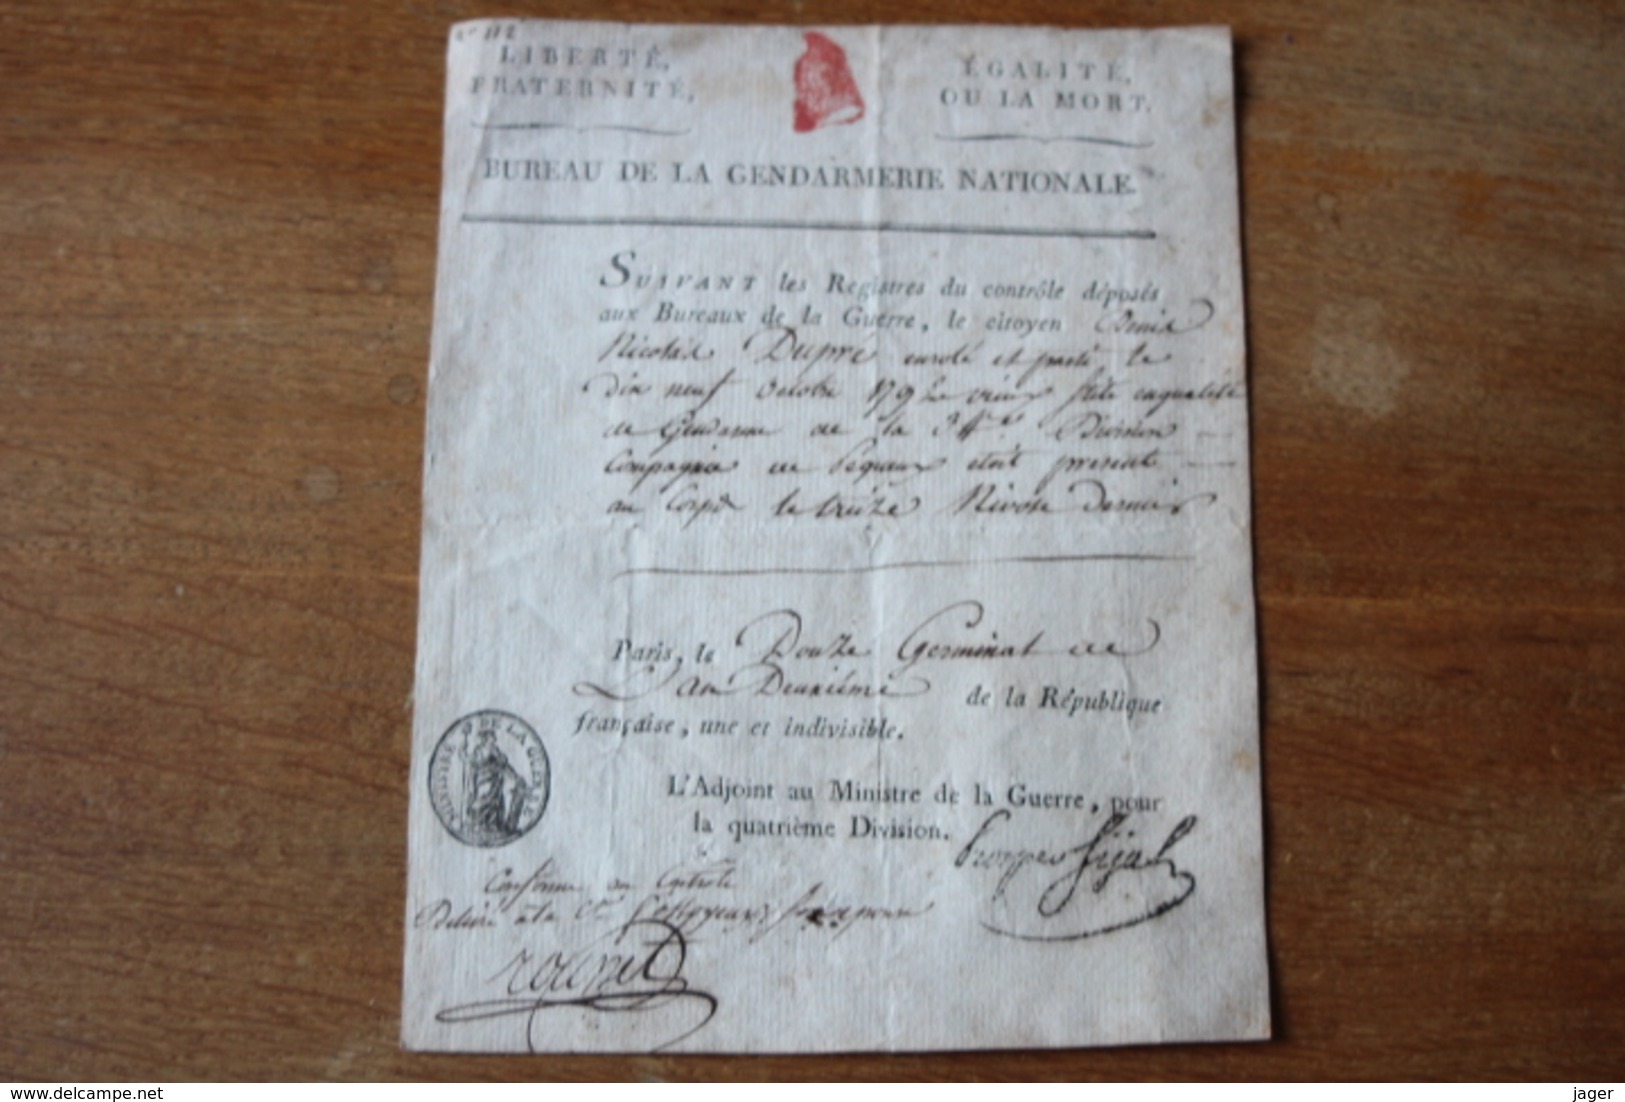 LIBERTÉ,
FRATERNITÉ,
ÉGALITÉ,
OU LA MORT.
BUREAU DE LA GENDARMERIE NATIONALE.
SUIVANT les Registres du contrôle déposés
aux Bureaux de la Guerre, le citoyen Denis
Nicolas Dupré enrolé et parti le
dix neuf Octobre 1792 vieux stile en qualité
de Gendarme de la 34e. Division
Compagnie de étoit présent
au Corps le treize Nivose dernier
Paris, le Douze Germinal de
L'an Deuxième de la République
française, une et indivisible.
L'Adjoint au Ministre de la Guerre, pour
la quatrième Division.
Prosper Sijas
MINISTERE DE LA GUERRE
Conforme au Controle
Délivré à la Cne
delcampe.net
jager